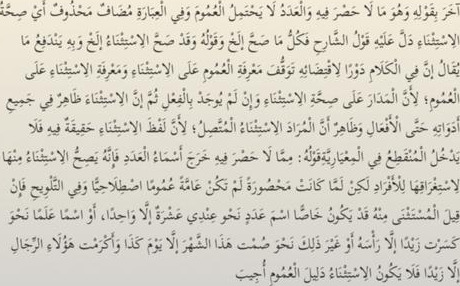 آخَرَ بِقَوْلِهِ وَهُوَ مَا لَا حَصْرَ فِيهِ وَالْعَدَدُ لَا يَحْتَمِلُ الْعُمُومَ وَفِي الْعِبَارَةِ مُضَافٌ مَحْذُوفٌ أَيْ صِحَّةُ
الِاسْتِثْنَاءِ دَلَّ عَلَيْهِ قَوْلُ الشَّارِحِ فَكُلُّ مَا صَحَّ إلَخْ وَقَوْلُهُ وَقَدْ صَحَّ الِاسْتِثْنَاءُ إلَخْ وَبِهِ يَنْدَفِعُ مَا
يُقَالُ إنَّ فِي الْكَلَامِ دَوْرًا لِاقْتِضَائِهِ تَوَقُّفَ مَعْرِفَةِ الْعُمُومِ عَلَى الِاسْتِثْنَاءِ وَمَعْرِفَةِ الِاسْتِثْنَاءِ عَلَى
الْعُمُومِ؛ لِأَنَّ الْمَدَارَ عَلَى صِحَّةِ الِاسْتِثْنَاءِ وَإِنْ لَمْ يُوجَدْ بِالْفِعْلِ ثُمَّ إنَّ الِاسْتِثْنَاءَ ظَاهِرٌ فِي جَمِيعِ
أَدَوَاتِهِ حَتَّى الْأَفْعَالِ وَظَاهِرٌ أَنَّ الْمُرَادَ الِاسْتِثْنَاءُ الْمُتَّصِلُ؛ لِأَنَّ لَفْظَ الِاسْتِثْنَاءِ حَقِيقَةٌ فِيهِ فَلَا
يَدْخُلُ الْمُنْقَطِعُ فِي الْمِعْيَارِيَّةِقَوْلُهُ: مِمَّا لَا حَصْرَ فِيهِ خَرَجَ أَسْمَاءُ الْعَدَدِ فَإِنَّهُ يَصِحُّ الِاسْتِثْنَاءُ مِنْهَا
لِاسْتِغْرَاقِهَا لِلْأَفْرَادِ لَكِنْ لَمَّا كَانَتْ مَحْصُورَةً لَمْ تَكُنْ عَامَّةً عُمُومًا اصْطِلَاحِيًّا وَفِي التَّلْوِيحِ فَإِنْ
قِيلَ الْمُسْتَثْنَى مِنْهُ قَدْ يَكُونُ خَاصًّا اسْمَ عَدَدٍ نَحْوِ عِنْدِي عَشَرَةٌ إلَّا وَاحِدًا، أَوْ اسْمًا عَلَمًا نَحْوَ
كَسَرْت زَيْدًا إلَّا رَأْسَهُ أَوْ غَيْرَ ذَلِكَ نَحْوَ صُمْت هَذَا الشَّهْرَ إلَّا يَوْمَ كَذَا وَأَكْرَمْت هَؤُلَاءِ الرِّجَالِ
إلَّا زَيْدًا فَلَا يَكُونُ الِاسْتِثْنَاءُ دَلِيلَ الْعُمُومِ أُجِيبَ